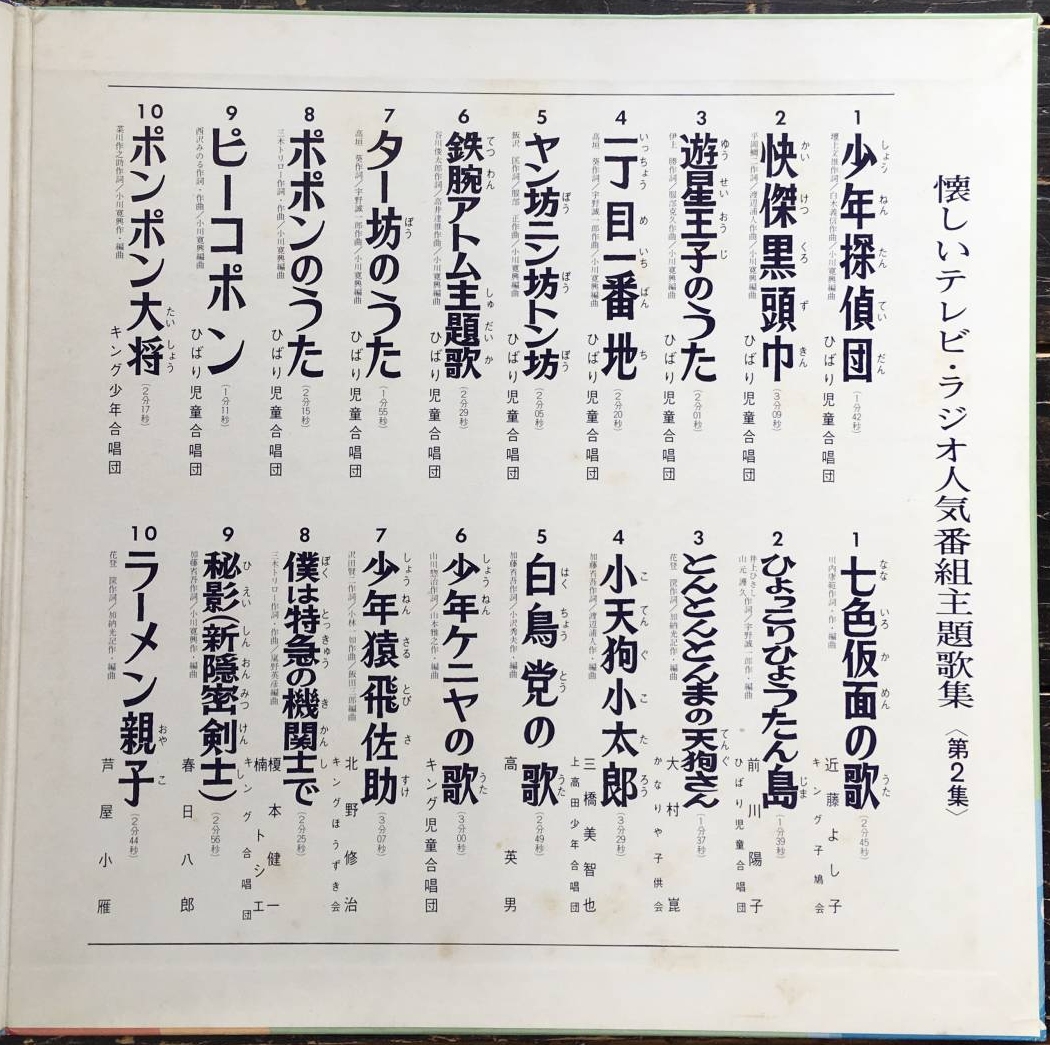 懐しいテレビ・ラジオ人気番組主題歌集〈第2集〉
1 少年探偵団 (1分42秒)
しょうねんたんていだん
壇上文雄作詞/白木義信作曲/小川寛興編曲
ひばり児童合唱団
2 快傑黒頭巾 (3分09秒)
かいけつくろずきん
渡辺浦人作曲/小川寛興編曲
ひばり児童合唱団
3 遊星王子のうた (2分01秒)
ゆうせいおうじ
伊上 勝作詞/服部克久作曲/小川寛興編曲
ひばり児童合唱団
4 一丁目一番地 (2分20秒)
いっちょうめいちばんち
高垣 葵作詞/宇野誠一郎作曲/小川寛興編曲
ひばり児童合唱団
5 ヤン坊ニン坊トン坊 (2分05秒)
ぼうぼうぼう
飯沢 匡作詞/服部 正作曲/小川寛興編曲
ひばり児童合唱団
6 鉄腕アトム主題歌 (2分29秒)
てつわんしゅだいか
谷川俊太郎作詞/高井達雄作曲/小川寛興編曲
ひばり児童合唱団
7 ター坊のうた (1分55秒)
ぼう
高垣 葵作詞/宇野誠一郎作曲/小川寛興編曲
ひばり児童合唱団
8 ポポンのうた (2分15秒)
三木トリロー作詞・作曲/小川寛興編曲
ひばり児童合唱団
9 ピーコポン (1分11秒)
西沢みのる作詞・作曲/小川寛興編曲
ひばり児童合唱団
10 ポンポン大将 (2分17秒)
たいしょう
菜川作之助作詞/小川寛興作・編曲
キング少年合唱団
1 七色仮面の歌 (2分45秒)
なないろかめんうた
川内康範作詞・作・編曲
近藤よし子
キング子鳩会
2 ひょっこりひょうたん島 (1分39秒)
じま
井上ひさし
山元護久作詞/宇野誠一郎作・編曲
前川陽子
ひばり児童合唱団
3 とんとんとんまの天狗さん (1分37秒)
てんぐ
花登 筺作詞/加納光記作・編曲
大村崑
かなりや子供会
4 小天狗小太郎 (3分29秒)
こてんぐこたろう
加藤省吾作詞/渡辺浦人作・編曲
三橋美智也
上高田少年合唱団
5 白鳥党の歌 (2分49秒)
はくちょうとううた
加藤省吾作詞/小沢秀夫作・編曲
高英男
6 少年ケニヤの歌 (3分00秒)
しょうねんうた
山川惣治作詞/山本雅之作・編曲
キング児童合唱団
7 少年猿飛佐助 (3分07秒)
しょうねんさるとびさすけ
沢田賢二作詞/小林一知作曲/飯田三郎編曲
北野修治
キングほうずき会
8 僕は特急の機関士で (2分25秒)
ぼくとっきゅうきかんし
三木トリロー作詞・作曲/嵐野英彦編曲
榎本健一
楠トシエ
キング合唱団
9 秘影(新隠密剣士) (2分56秒)
ひえいしんおんみつけんし
加藤省吾作詞/小川寛興作・編曲
春日八郎
10 ラーメン親子 (2分44秒)
おやこ
花登 筺作詞/加納光記作・編曲
芦屋小雁